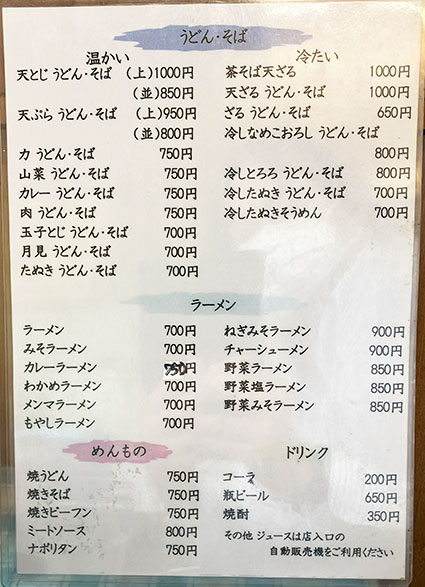 うどん・そば
温かい
天とじ うどん・そば (上)1000円
(並)850円
天ぷら うどん・そば (上)950円
(並)800円
力 うどん・そば 750円
山菜 うどん・そば 750円
カレー うどん・そば 750円
肉 うどん・そば 750円
玉子とじ うどん・そば 700円
月見 うどん・そば 700円
たぬき うどん・そば 700円
冷たい
茶そば天ざる 1000円
天ざる うどん・そば 1000円
ざる うどん・そば 650円
冷しなめこおろし うどん・そば
800円
冷しとろろ うどん・そば 800円
冷したぬき うどん・そば 700円
冷したぬきそうめん 700円
ラーメン
ラーメン 700円
みそラーメン 700円
カレーラーメン 750円
わかめラーメン 700円
メンマラーメン 700円
もやしラーメン 700円
ねぎみそラーメン 900円
チャーシューメン 900円
野菜ラーメン 850円
野菜塩ラーメン 850円
野菜みそラーメン 850円
めんもの
焼うどん 750円
焼きそば 750円
焼きビーフン 750円
ミートソース 800円
ナポリタン 750円
ドリンク
コーラ 200円
瓶ビール 650円
焼酎 350円
その他 ジュースは店入口の
自動販売機をご利用ください